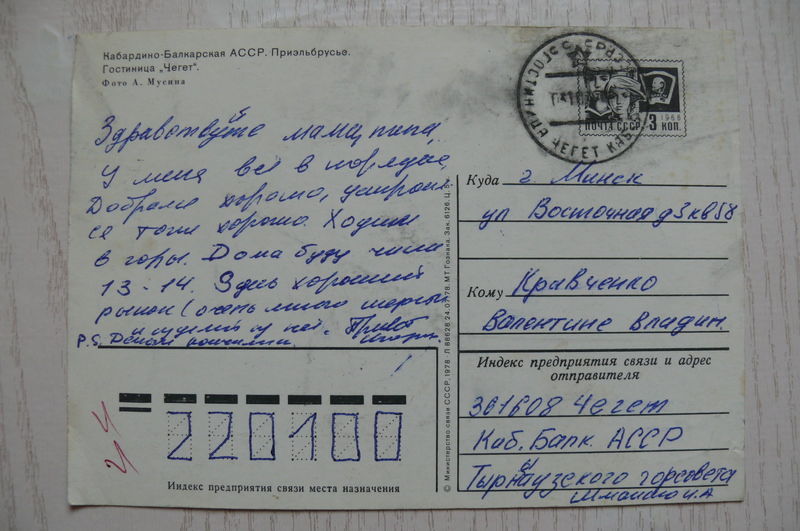 Кабардино-Балкарская АССР. Приэльбрусье.
Гостиница „Чегет“.
Фото А. Мусина
Здравствуйте мама, папа,
У меня всё в порядке,
Добрался хорошо, устроил-
ся тоже хорошо. Ходим
в горы. Дома буду числа
13-14. Здесь хороший
рынок (очень много шерсти
и изделий из неё. Привет
P.S. Деньги кончились.
ПОЧТА СССР 3 КОП.
1966
ЧЕГЕТ
Куда г. Минск
ул Восточная д3 кв58
Кому Кравченко
Валентине Владим.
Индекс предприятия связи и адрес
отправителя
361608 Чегет
Каб. Балк. АССР
Тырныаузского горсовета
И.А
220100
Индекс предприятия связи места назначения
© Министерство связи СССР, 1978 Л 86628 24.07.78. МТ.Гознака. Зак. 6126. Ц. 5 к.